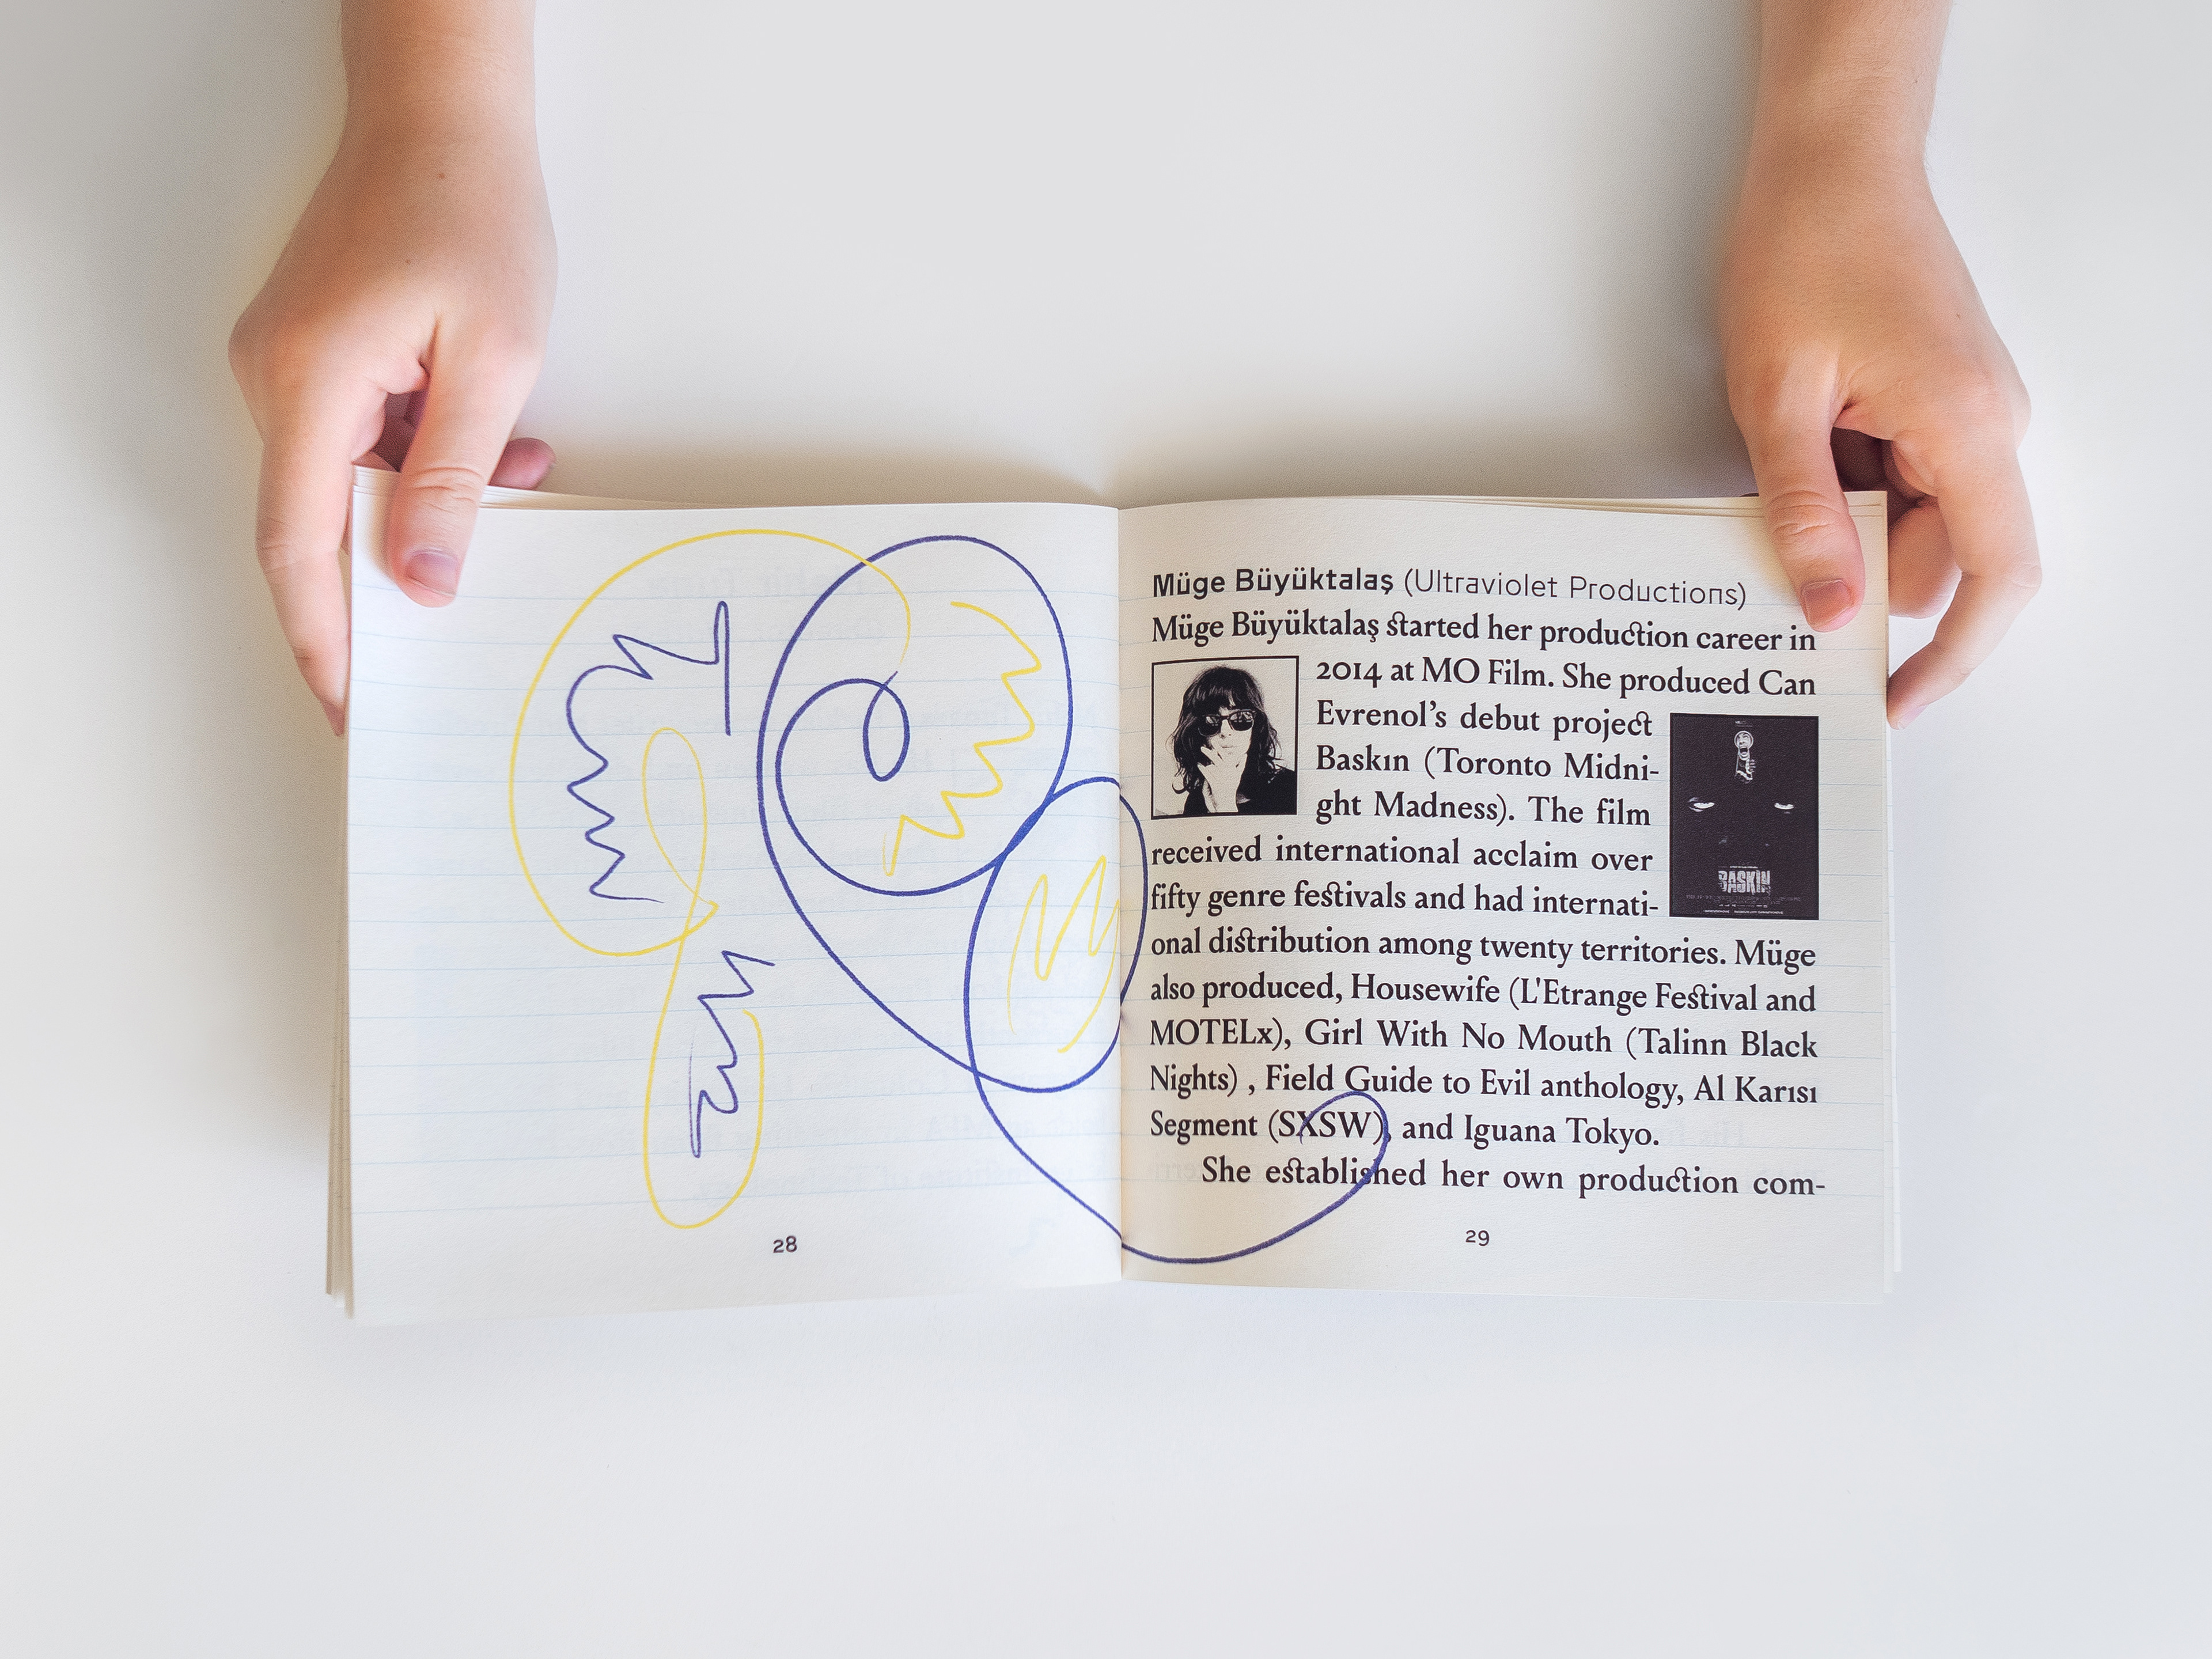 Müge Büyüktalaş (Ultraviolet Productions)
Müge Büyüktalaş started her production career in
2014 at MO Film. She produced Can
Evrenol's debut project
Baskın (Toronto Midni-
ght Madness). The film
received international acclaim over
fifty genre festivals and had internati-
onal distribution among twenty territories. Müge
also produced, Housewife (L'Etrange Festival and
MOTELx), Girl With No Mouth (Talinn Black
Nights) , Field Guide to Evil anthology, Al Karısı
Segment (SXSW), and Iguana Tokyo.
She established her own production com-
BASKIN
28
29